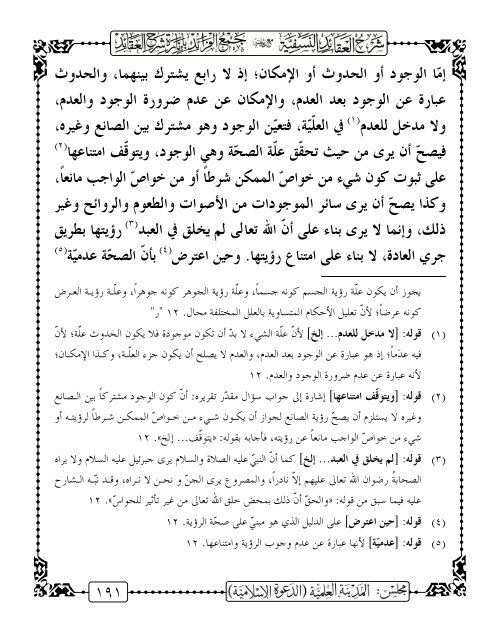 شرح العقائد النسفية مع جمع الفرائد بإنارة شرح العقائد
إمّا الوجود أو الحدوث أو الإمكان؛ إذ لا رابع يشترك بينهما، والحدوث
عبارة عن الوجود بعد العدم، والإمكان عن عدم ضرورة الوجود والعدم،
ولا مدخل للعدم(١) في العلّيّة، فتعيّن الوجود وهو مشترك بين الصانع وغيره،
فيصحّ أن يرى من حيث تحقّق علّة الصحّة وهي الوجود، ويتوقّف امتناعها(٢)
على ثبوت كون شيء من خواصّ الممكن شرطاً أو من خواصّ الواجب مانعاً،
وكذا يصحّ أن يرى سائر الموجودات من الأصوات والطعوم والروائح وغير
ذلك، وإنما لا يرى بناء على أنّ الله تعالى لم يخلق في العبد(٣) رؤيتها بطريق
جري العادة، لا بناء على امتناع رؤيتها. وحين اعترض(٤) بأنّ الصحّة عدميّة(٥)
يجوز أن يكون علّة رؤية الجسم كونه جسماً، وعلّة رؤية الجوهر كونه جوهراً، وعلّة رؤية العرض
كونه عرضاً؛ لأنّ تعليل الأحكام المتساوية بالعلل المختلفة محال. ١٢ "ر"
(١) قوله: [لا مدخل للعدم... إلخ] لأنّ علّة الشيء لا بدّ أن تكون موجودة فلا يكون الحدوث علّة؛ لأنّ
فيه عدَماً؛ إذ هو عبارة عن الوجود بعد العدم، والعدم لا يصلح أن يكون جزء العلّة، وكذا الإمكان؛
لأنه عبارة عن عدم ضرورة الوجود والعدم. ١٢
(٢) قوله: [ويتوقّف امتناعها] إشارة إلى جواب سؤال مقدّر تقريره: أنّ كون الوجود مشتركاً بين الصانع
وغيره لا يستلزم أن يصحّ رؤية الصانع لجواز أن يكون شيء من خواصّ الممكن شرطاً لرؤيته أو
شيء من خواصّ الواجب مانعاً عن رؤيته، فأجابه بقوله: «يتوقّف... إلخ». ١٢
(٣) قوله: [لم يخلق في العبد... إلخ] كما أنّ النبيّ عليه الصلاة والسلام يرى جبرئيل عليه السلام ولا يراه
الصحابةُ رضوان الله تعالى عليهم إلاّ نادراً، والمصروع يرى الجنّ و نحن لا نراه، وقد نبّه الشارح
عليه فيما سبق من قوله: «والحقّ أنّ ذلك بمحض خلق الله تعالى من غير تأثير للحواسّ». ١٢
(٤) قوله: [حين اعترض] على الدليل الذي هو مبنيّ على صحّة الرؤية. ١٢
(٥) قوله: [عدميّة] لأنها عبارة عن عدم وجوب الرؤية وامتناعها. ١٢
مجلس: المدينة العلمية (الدعوة الإسلامية)
١٩١